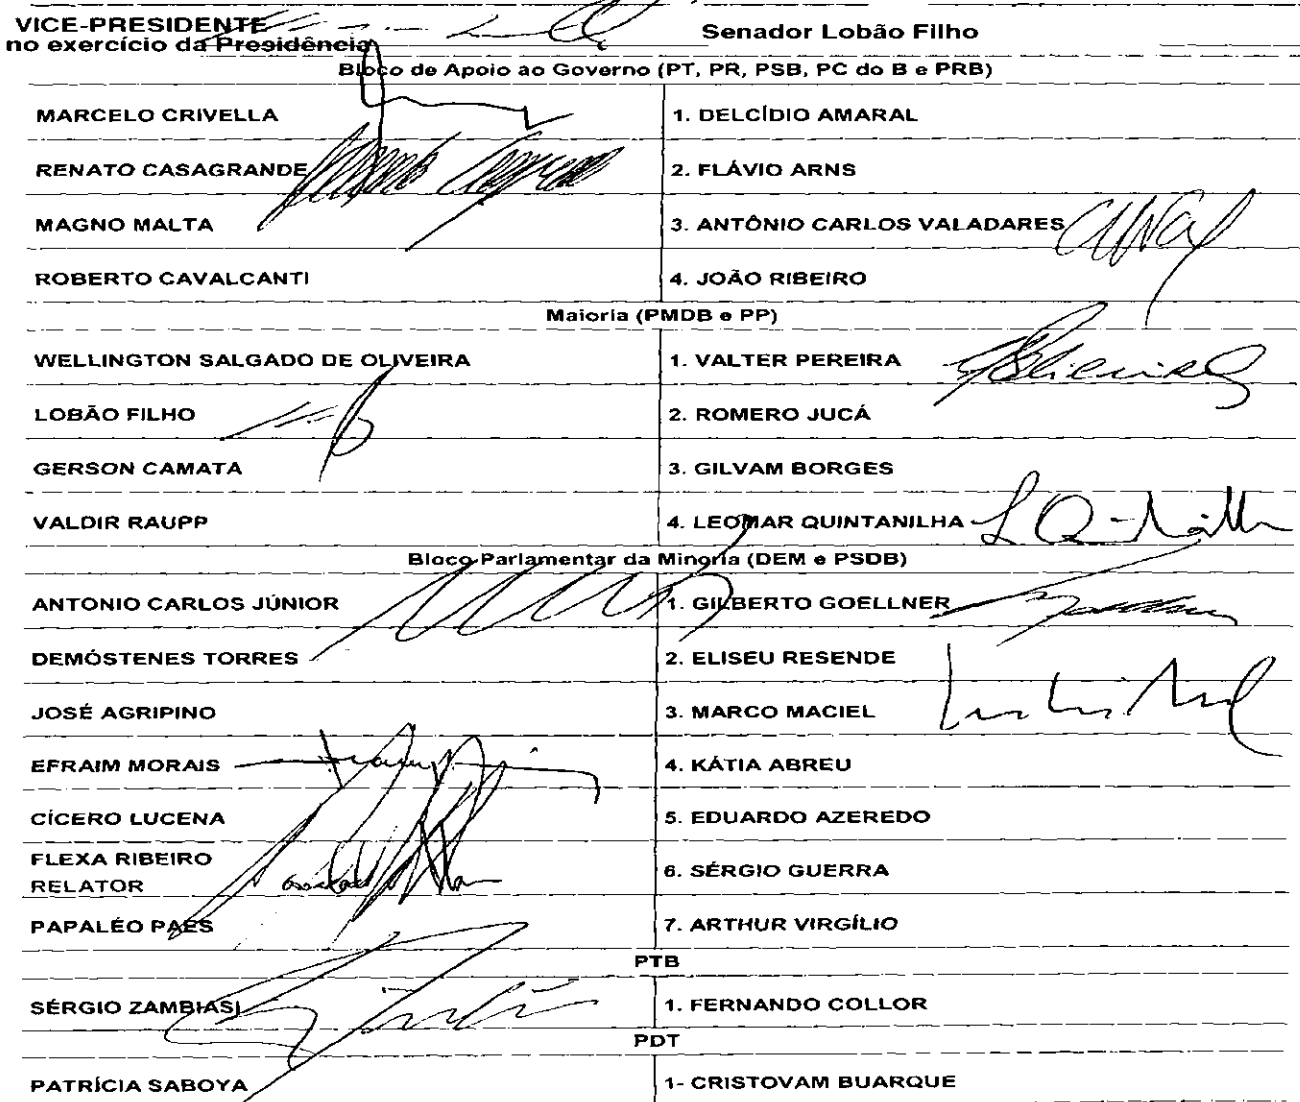 VICE-PRESIDENTE
no exercício da Presidência
Senador Lobão Filho
Bloco de Apoio ao Governo (PT, PR, PSB, PC do B e PRB)
MARCELO CRIVELLA
1. DELCÍDIO AMARAL
RENATO CASAGRANDE
2. FLÁVIO ARNS
MAGNO MALTA
3. ANTÔNIO CARLOS VALADARES
ROBERTO CAVALCANTI
4. JOÃO RIBEIRO
Maioria (PMDB e PP)
WELLINGTON SALGADO DE OLIVEIRA
1. VALTER PEREIRA
LOBÃO FILHO
2. ROMERO JUCÁ
GERSON CAMATA
3. GILVAM BORGES
VALDIR RAUPP
4. LEOMAR QUINTANILHA
Bloco Parlamentar da Minoria (DEM e PSDB)
ANTONIO CARLOS JÚNIOR
1. GILBERTO GOELLNER
DEMÓSTENES TORRES
2. ELISEU RESENDE
JOSÉ AGRIPINO
3. MARCO MACIEL
EFRAIM MORAIS
4. KÁTIA ABREU
CÍCERO LUCENA
5. EDUARDO AZEREDO
FLEXA RIBEIRO
RELATOR
6. SÉRGIO GUERRA
PAPALÉO PAES
7. ARTHUR VIRGÍLIO
PTB
SÉRGIO ZAMBIASI
1. FERNANDO COLLOR
PDT
PATRÍCIA SABOYA
1- CRISTOVAM BUARQUE